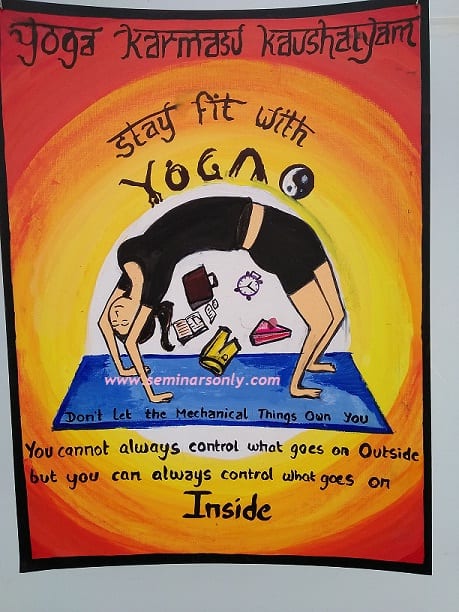 Yoga Karmasu Kaushalyam
Stay fit with
YOGA
www.seminarsonly.com
Don't let the Mechanical Things Own You
You cannot always control what goes on Outside
but you can always control what goes on
Inside